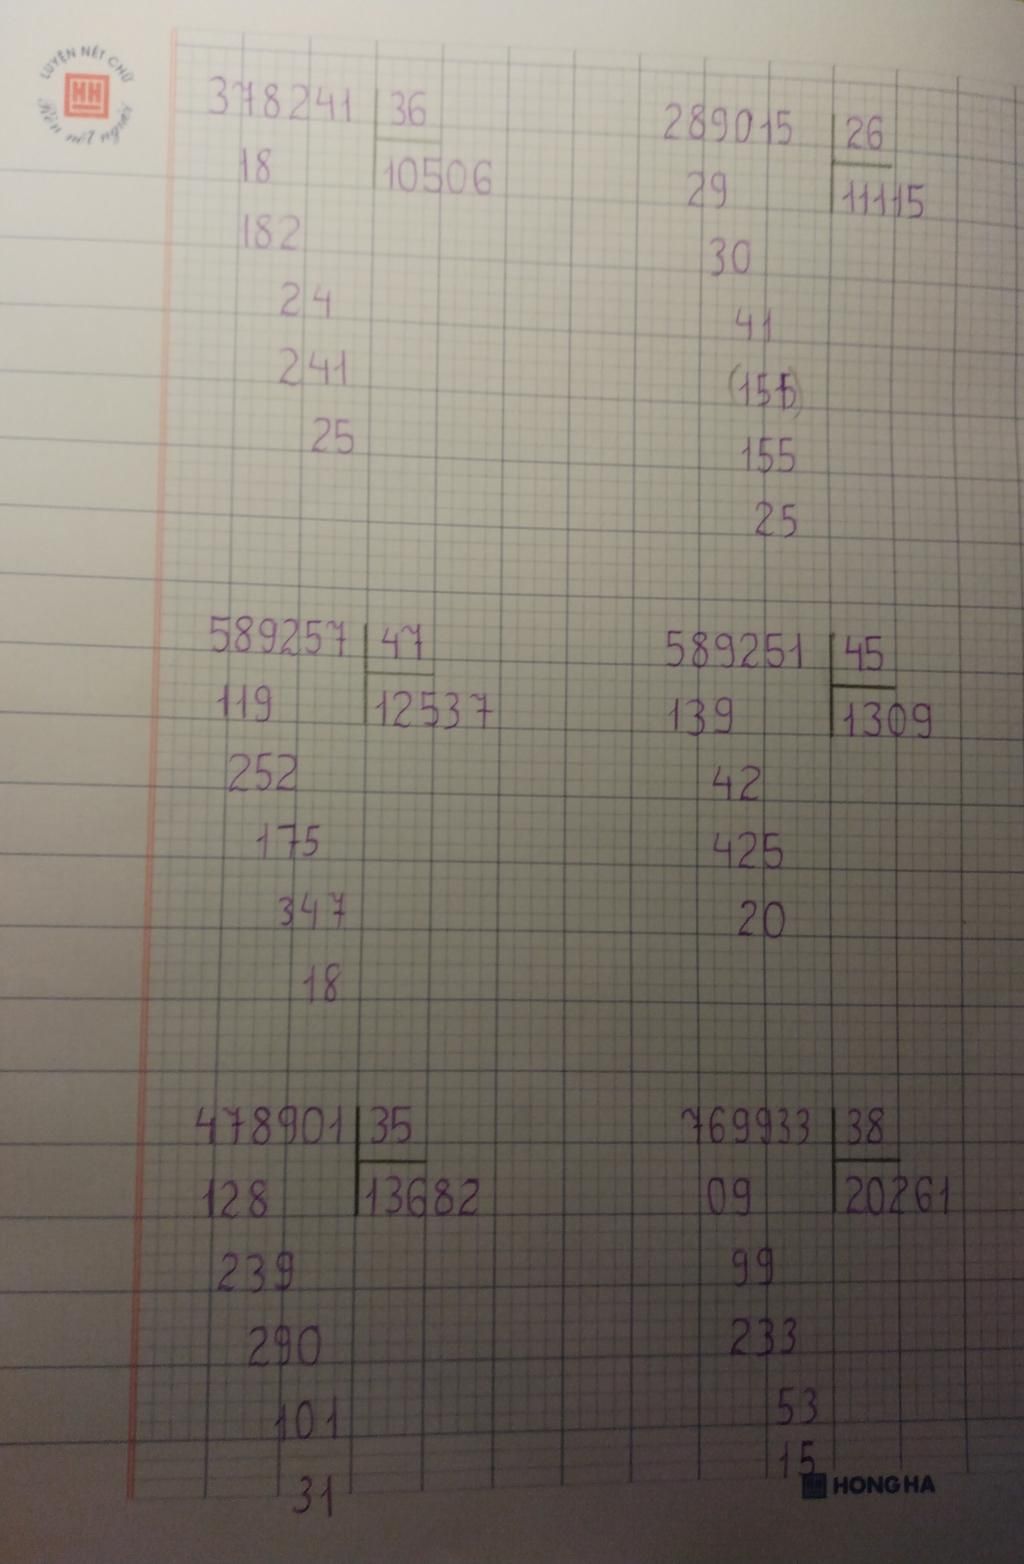 LUYỆN NÉT CHỮ
HH
Rèn nết người
378241 36
18 10506
182
24
241
25
289015 26
29 11115
30
41
(155)
155
25
589257 47
119 12537
252
175
347
18
589251 45
139 1309
42
425
20
478901 35
128 13682
239
290
101
31
769933 38
09 20261
99
233
53
15
HONG HA